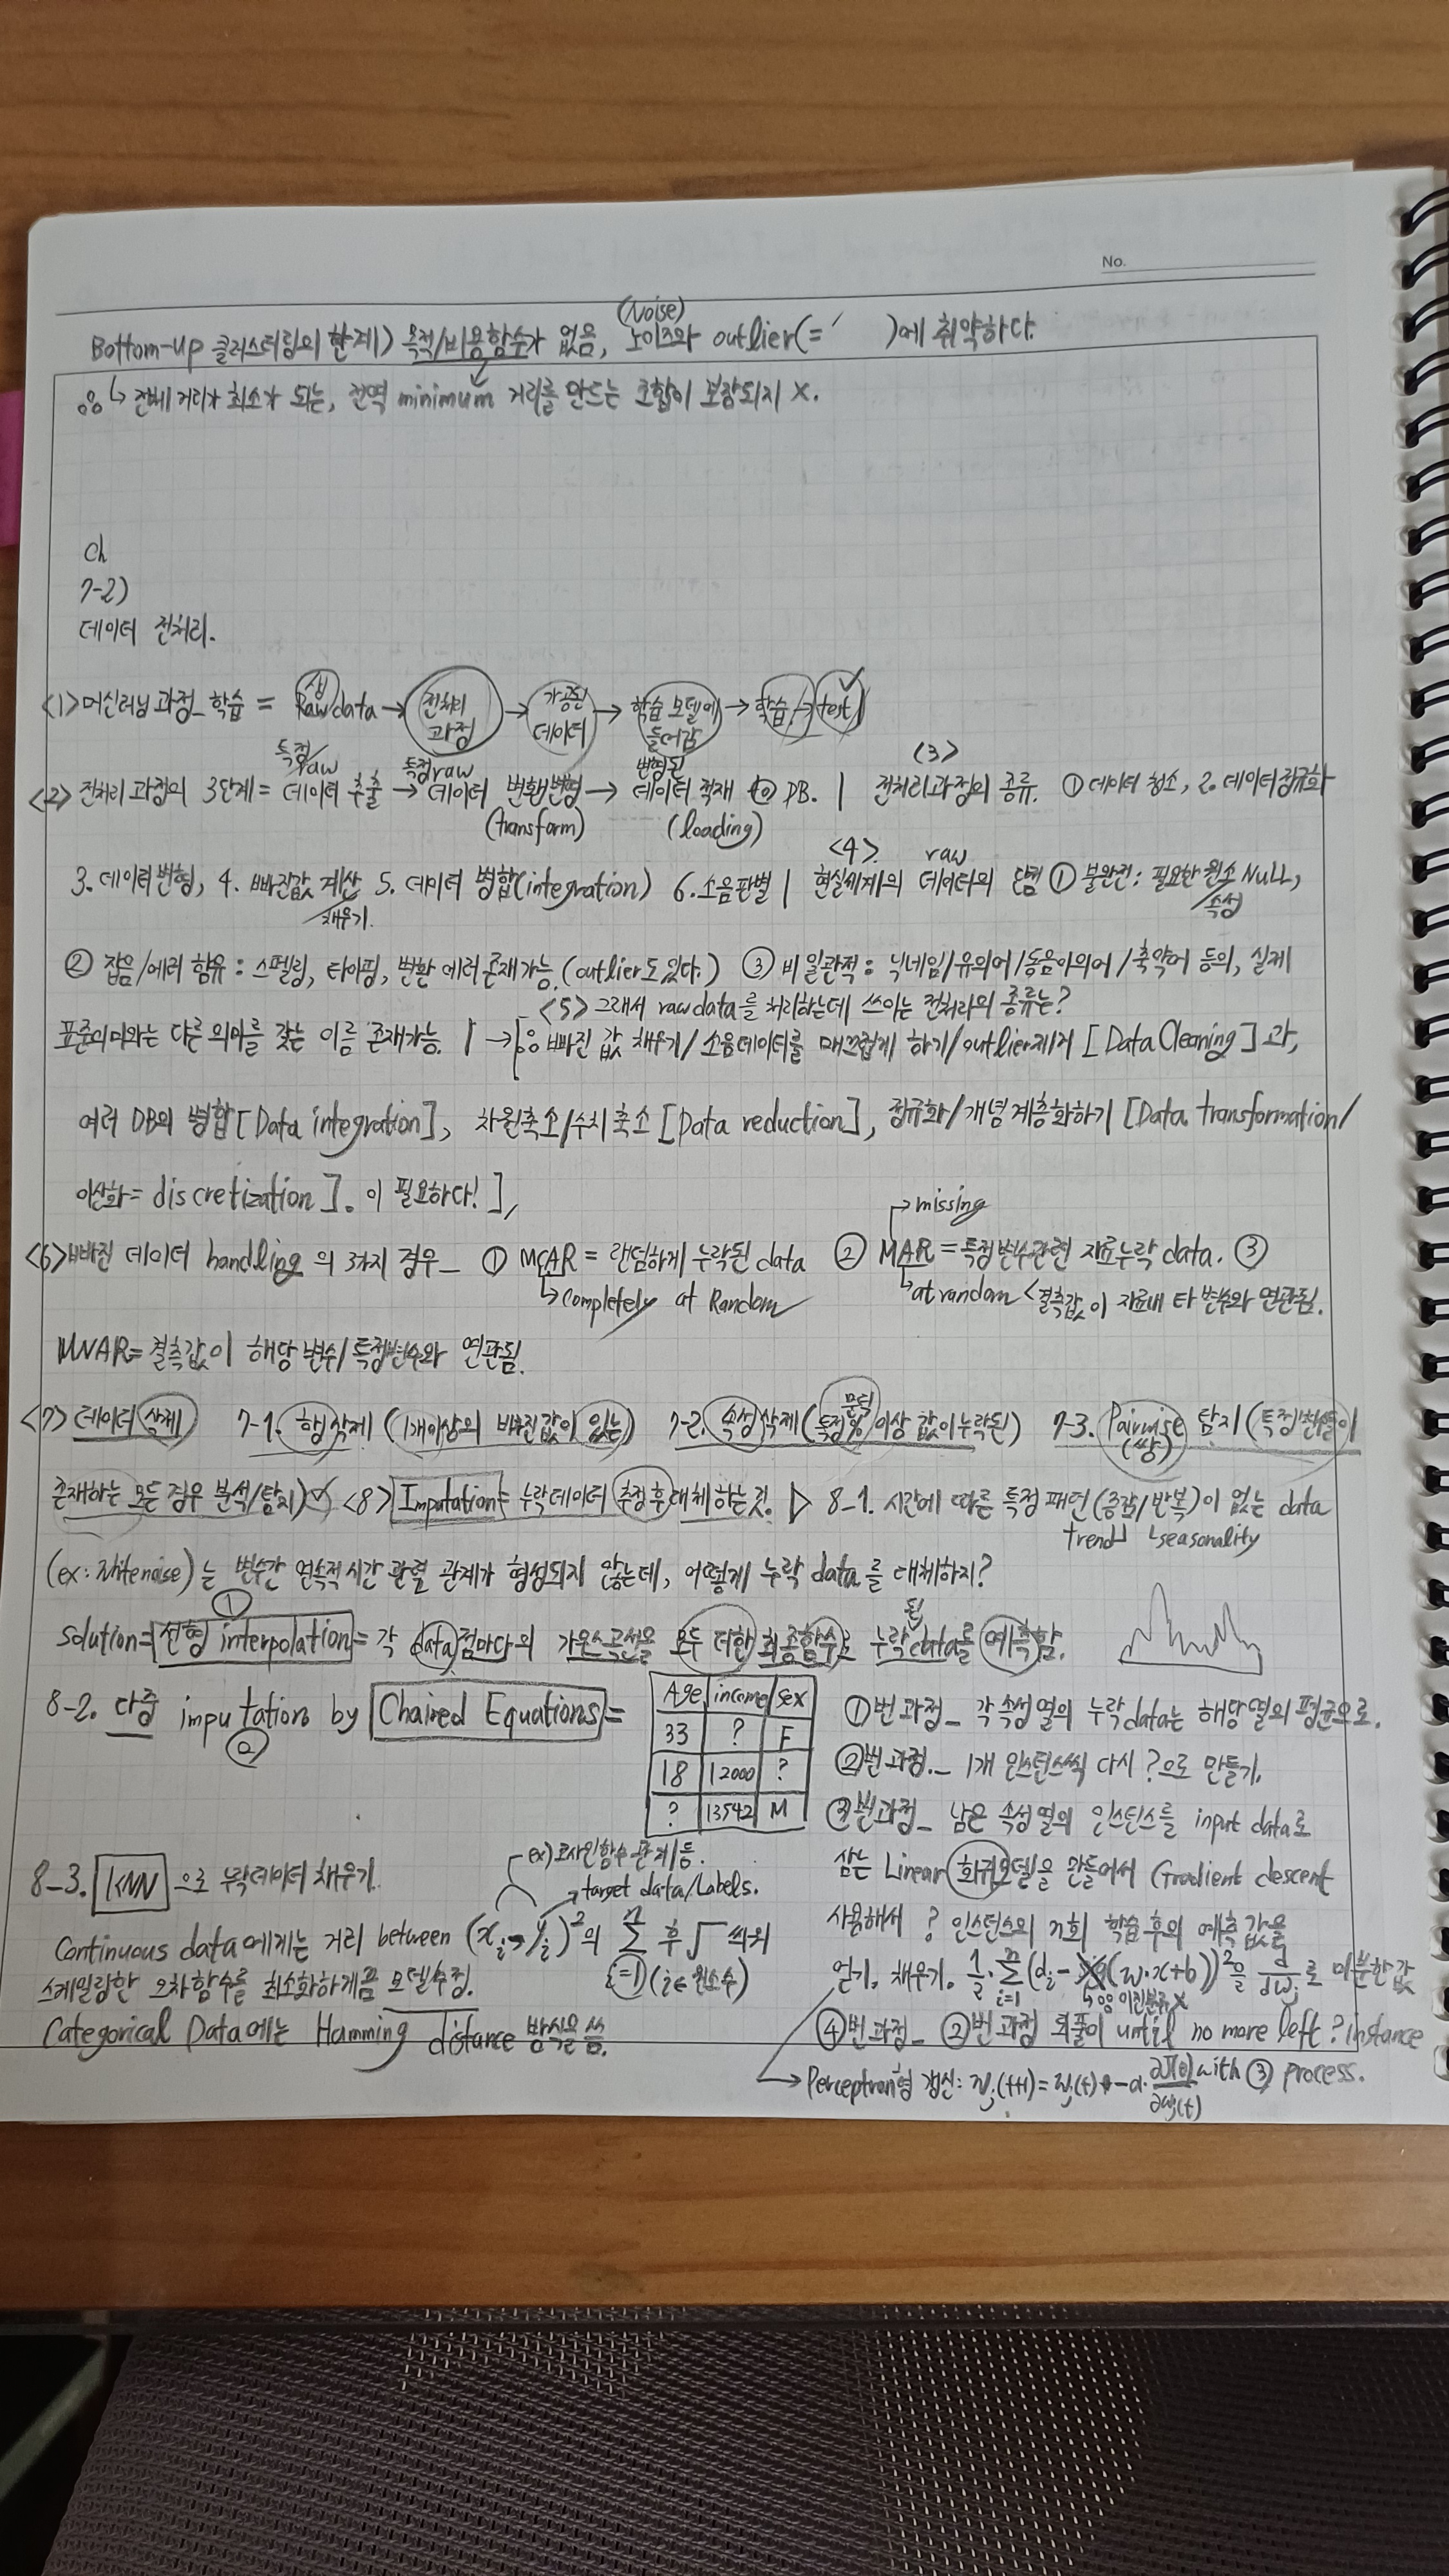 No.
(Noise)
Bottom-up 클러스터링의 한계) 목적/비용함수가 없음, 노이즈와 outlier(=′ )에 취약하다.
∴ ↳ 전체 거리가 최소가 되는, 전역 minimum 거리를 만드는 조합이 보장되지 X.
Ch
7-2)
데이터 전처리.
<1> 머신러닝 과정_ 학습 = 생 Raw data → 전처리 과정 → 가공된 데이터 → 학습 모델에 들어감 → 학습 → test
<2> 전처리 과정의 3단계 = 특정/raw 데이터 추출 → 특정raw 데이터 변환/변형 (transform) → 변형된 데이터 적재 (loading) to DB. | <3> 전처리과정의 종류. ① 데이터 청소, 2. 데이터정규화
3. 데이터 변형, 4. 빠진값 계산/채우기. 5. 데이터 병합(integration) 6. 소음판별 | <4> 현실세계의 raw 데이터의 단점 ① 불완전: 필요한 원소/속성 NULL,
② 잡음/에러 함유: 스펠링, 타이핑, 변환 에러 존재가능. (outlier도 있다.) ③ 비일관적: 닉네임/유의어/동음이의어/축약어 등의, 실제
<5> 그래서 raw data를 처리하는데 쓰이는 전처리의 종류는?
표준의미와는 다른 의미를 갖는 이름 존재가능. | → [∴ 빠진 값 채우기/소음데이터를 매끄럽게 하기/outlier제거 [Data Cleaning]과,
여러 DB의 병합[Data integration], 차원축소/수치축소 [Data reduction], 정규화/개념 계층화하기 [Data transformation/
이산화=discretization]. 이 필요하다!],
<6> 빠진 데이터 handling의 3가지 경우_ ① MCAR = 랜덤하게 누락된 data ② MAR = 특정변수관련 자료누락 data. ③
→ missing
↳ completely at Random
↳ at random < 결측값이 자료내 타 변수와 연관됨.
MNAR = 결측값이 해당 변수/특정변수와 연관됨.
<7> 데이터 삭제 7-1. 행삭제 (1개이상의 빠진값이 있는) 7-2. 속성삭제 (특정% 이상 값이 누락된) 7-3. Pairwise (쌍) 탐지 (특정변수들이
존재하는 모든 경우 분석/탐지) <8> Imputation = 누락데이터 추정후 대체하는것. ▷ 8-1. 시간에 따른 특정 패턴(증감/반복)이 없는 data
trend ↳ seasonality
(ex: whitenoise)는 변수간 연속적 시간 관련 관계가 형성되지 않는데, 어떻게 누락 data를 대체하지?
solution = ① 선형 interpolation = 각 data점마다의 가우스곡선을 모두 더한 최종함수로 누락된 data를 예측함.
8-2. 다중 imputation by Chained Equations =
②
Age income sex
33 ? F
18 12000 ?
? 13542 M
①번 과정_ 각 속성열의 누락data는 해당열의 평균으로.
②번 과정._ 1개 인스턴스씩 다시 ?으로 만들기.
③번과정_ 남은 속성열의 인스턴스를 input data로
삼는 Linear 회귀모델을 만들어서 Gradient descent
사용해서 ? 인스턴스의 n회 학습 후의 예측값을
얻기, 채우기. ½·Σ(i=1, n)(dᵢ-(w·x+b))²을 d/dwⱼ로 미분한값
↳ ∴ 이진분류X
④번과정_ ②번과정 되풀이 until no more left ? instance
→ Perceptron형 갱신: wⱼ(t+1) = wⱼ(t) -α·∂J(θ)/∂wⱼ(t) with ③ process.
8-3. KNN으로 누락데이터 채우기.
ex) 코사인함수 관계 등.
→ target data/Labels.
Continuous data에게는 거리 between (xᵢ→yᵢ)²의 Σ(i=1, n) 후 √ 씌워
(i∈원소수)
스케일링한 오차함수를 최소화하게끔 모델수정.
Categorical Data에는 Hamming distance 방식을 씀.